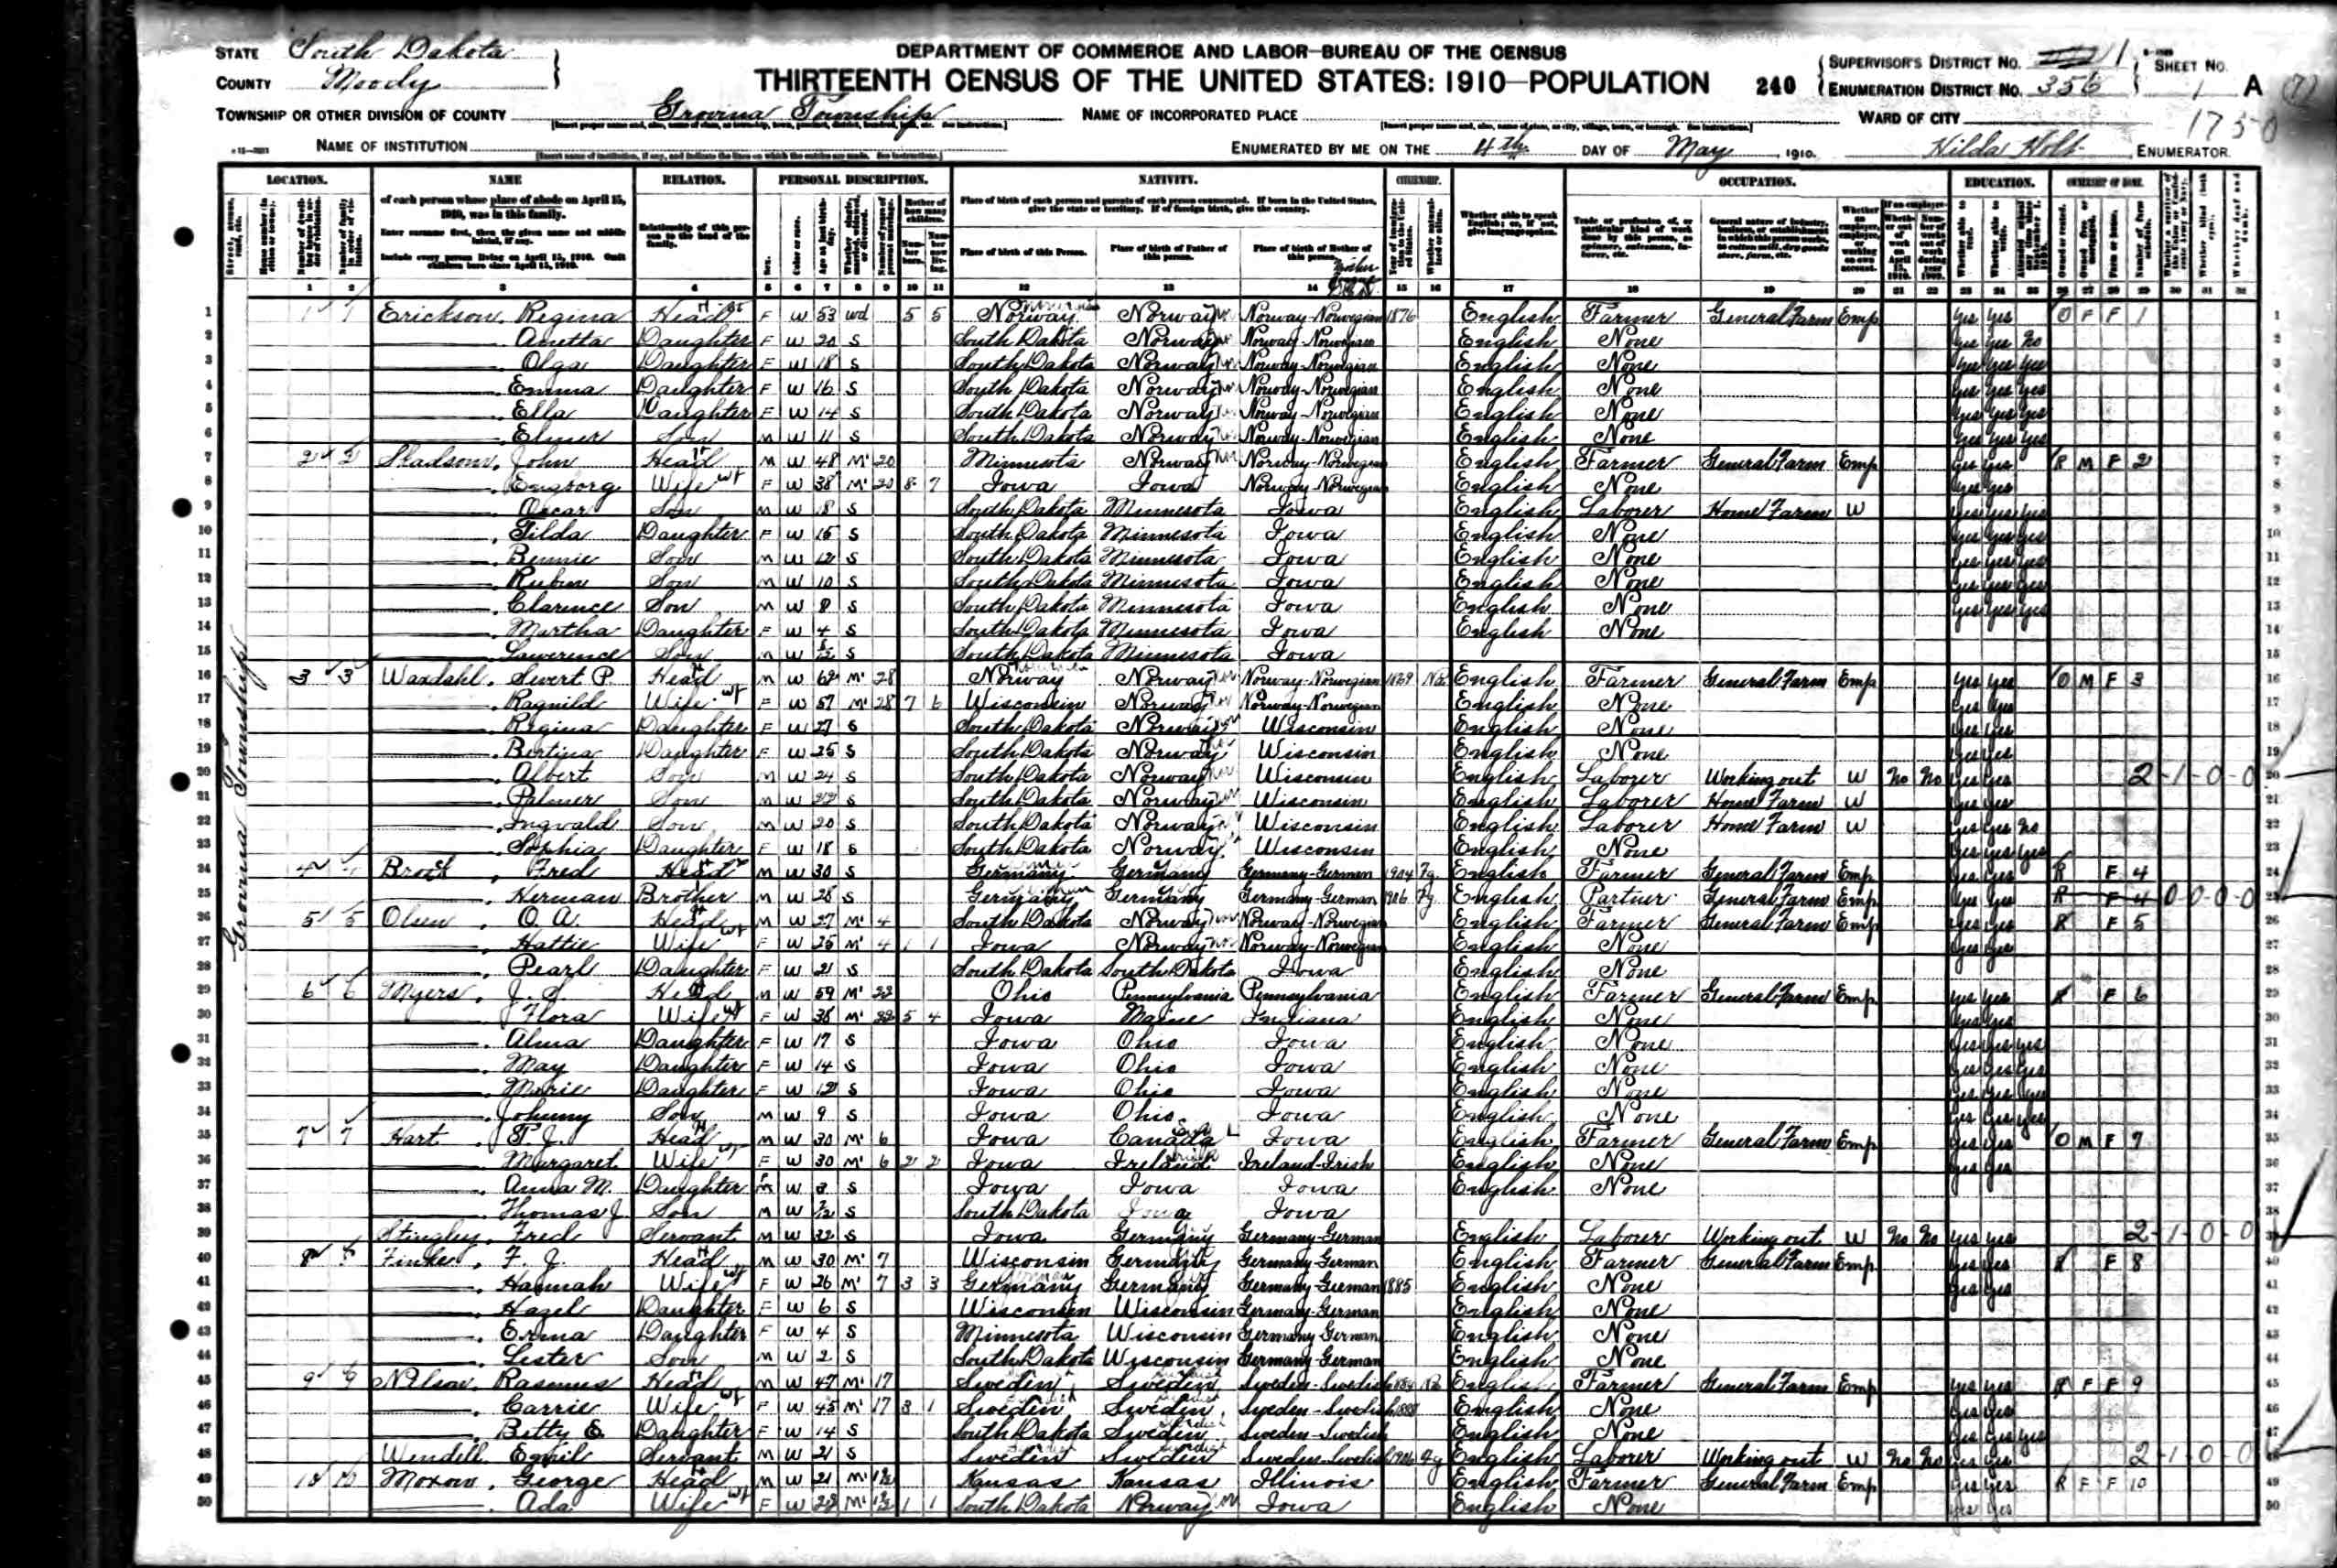 STATE South Dakota
COUNTY Moody
DEPARTMENT OF COMMERCE AND LABOR—BUREAU OF THE CENSUS
THIRTEENTH CENSUS OF THE UNITED STATES: 1910—POPULATION
240
SUPERVISOR'S DISTRICT No. 1
ENUMERATION DISTRICT No. 356
SHEET No. 1 A
TOWNSHIP OR OTHER DIVISION OF COUNTY Grovina Township
NAME OF INCORPORATED PLACE
WARD OF CITY
1750
NAME OF INSTITUTION
ENUMERATED BY ME ON THE 4th DAY OF May, 1910. Hilda Holt, ENUMERATOR.
LOCATION. NAME RELATION. PERSONAL DESCRIPTION. NATIVITY. CITIZENSHIP. OCCUPATION. EDUCATION. OWNERSHIP OF HOME.
of each person whose place of abode on April 15, 1910, was in this family.
Enter surname first, then the given name and middle initial, if any.
Include every person living on April 15, 1910. Omit children born since April 15, 1910.
Relationship of this person to the head of the family.
Place of birth of each person and parents of each person enumerated. If born in the United States, give the state or territory. If of foreign birth, give the country.
Place of birth of this Person. Place of birth of Father of this person. Place of birth of Mother of this person.
Whether able to speak English; or, if not, give language spoken.
1 2 3 4 5 6 7 8 9 10 11 12 13 14 15 16 17 18 19 20 21 22 23 24 25 26 27 28 29 30 31 32
Grovina Township
1 1 1 Erickson, Regina Head F W 53 wd 5 5 Norway Norway Norway-Norwegian 1876 English Farmer General Farm Emp yes yes O F F 1
2 Anetta Daughter F W 20 S South Dakota Norway Norway-Norwegian English None yes yes no
3 Olga Daughter F W 18 S South Dakota Norway Norway-Norwegian English None yes yes yes
4 Emma Daughter F W 16 S South Dakota Norway Norway-Norwegian English None yes yes yes
5 Ella Daughter F W 14 S South Dakota Norway Norway-Norwegian English None yes yes yes
6 Elmer Son M W 11 S South Dakota Norway Norway-Norwegian English None yes yes yes
7 2 2 John Head M W 48 M1 20 Minnesota Norway Norway-Norwegian English Farmer General Farm Emp yes yes R M F 2
8 Wife F W 38 M1 20 8 7 Iowa Iowa Norway-Norwegian English None yes yes
9 Oscar Son M W 18 S South Dakota Minnesota Iowa English Laborer Home Farm W yes yes yes
10 Tilda Daughter F W 15 S South Dakota Minnesota Iowa English None yes yes yes
11 Bennie Son M W 12 S South Dakota Minnesota Iowa English None yes yes yes
12 Ruben Son M W 10 S South Dakota Minnesota Iowa English None yes yes yes
13 Clarence Son M W 8 S South Dakota Minnesota Iowa English None yes yes yes
14 Martha Daughter F W 4 S South Dakota Minnesota Iowa English None
15 Lawerence Son M W S South Dakota Minnesota Iowa
16 3 3 Waxdahl, Sivert P. Head M W 62 M1 28 Norway Norway Norway-Norwegian Na English Farmer General Farm Emp yes yes O M F 3
17 Ragnild Wife F W 57 M1 28 7 6 Wisconsin Norway Norway-Norwegian English None yes yes
18 Regina Daughter F W 27 S South Dakota Norway Wisconsin English None yes yes
19 Bertina Daughter F W 25 S South Dakota Norway Wisconsin English None yes yes
20 Albert Son M W 24 S South Dakota Norway Wisconsin English Laborer Working out W no no yes yes 2-1-0-0
21 Palmer Son M W 22 S South Dakota Norway Wisconsin English Laborer Home Farm W yes yes
22 Ingvald Son M W 20 S South Dakota Norway Wisconsin English Laborer Home Farm W yes yes no
23 Sophia Daughter F W 18 S South Dakota Norway Wisconsin English None yes yes yes
24 4 4 Brock, Fred Head M W 30 S Germany Germany Germany-German 1904 English Farmer General Farm Emp yes yes R F 4
25 Herman Brother M W 28 S Germany Germany Germany-German 1906 English Partner General Farm Emp yes yes R F 4 0-0-0-0
26 5 5 Olsen, O. A. Head M W 27 M1 4 South Dakota Norway Norway-Norwegian English Farmer General Farm Emp yes yes R F 5
27 Hattie Wife F W 25 M1 4 1 1 Iowa Norway Norway-Norwegian English None yes yes
28 Pearl Daughter F W 2 S South Dakota South Dakota Iowa English None
29 6 6 Myers, J. S. Head M W 59 M1 22 Ohio Pennsylvania Pennsylvania English Farmer General Farm Emp yes yes R F 6
30 Flora Wife F W 38 M1 22 5 4 Iowa Maine Indiana English None yes yes
31 Alma Daughter F W 17 S Iowa Ohio Iowa English None yes yes yes
32 May Daughter F W 14 S Iowa Ohio Iowa English None yes yes yes
33 Marie Daughter F W 12 S Iowa Ohio Iowa English None yes yes yes
34 Johnny Son M W 9 S Iowa Ohio Iowa English None yes yes yes
35 7 7 Hart, T. J. Head M W 30 M1 6 Iowa Canada Iowa English Farmer General Farm Emp yes yes O M F 7
36 Margaret Wife F W 30 M1 6 2 2 Iowa Ireland Ireland-Irish English None yes yes
37 Anna M. Daughter W 3 S Iowa Iowa Iowa English None
38 Thomas J. Son M W S South Dakota Iowa Iowa
39 Stingley, Fred Servant M W 22 S Iowa Germany Germany-German English Laborer Working out W no no yes yes 2-1-0-0
40 8 8 Finke, F. J. Head M W 30 M1 7 Wisconsin Germany Germany-German English Farmer General Farm Emp yes yes R F 8
41 Hannah Wife F W 26 M1 7 3 3 Germany Germany Germany-German 1885 English None yes yes
42 Hazel Daughter F W 6 S Wisconsin Wisconsin Germany-German English None
43 Erma Daughter F W 4 S Minnesota Wisconsin Germany German English None
44 Lester Son M W 2 S South Dakota Wisconsin Germany-German English None
45 9 9 Nelson, Rasmus Head M W 47 M1 17 Sweden Sweden Sweden-Swedish Na English Farmer General Farm Emp yes yes R F F 9
46 Carrie Wife F W 45 M1 17 3 1 Sweden Sweden Sweden-Swedish 1888 English None yes yes
47 Betty E. Daughter F W 14 S South Dakota Sweden Sweden-Swedish English None yes yes yes
48 Wendell, Emil Servant M W 21 S Sweden Sweden Sweden-Swedish 1906 English Laborer Working out W no no yes yes 2-1-0-0
49 10 10 Moxon, George Head M W 21 M1 Kansas Kansas Illinois English Farmer General Farm Emp yes yes R F F 10
50 Ada Wife F W 22 M1 1 1 South Dakota Norway Iowa English None yes yes